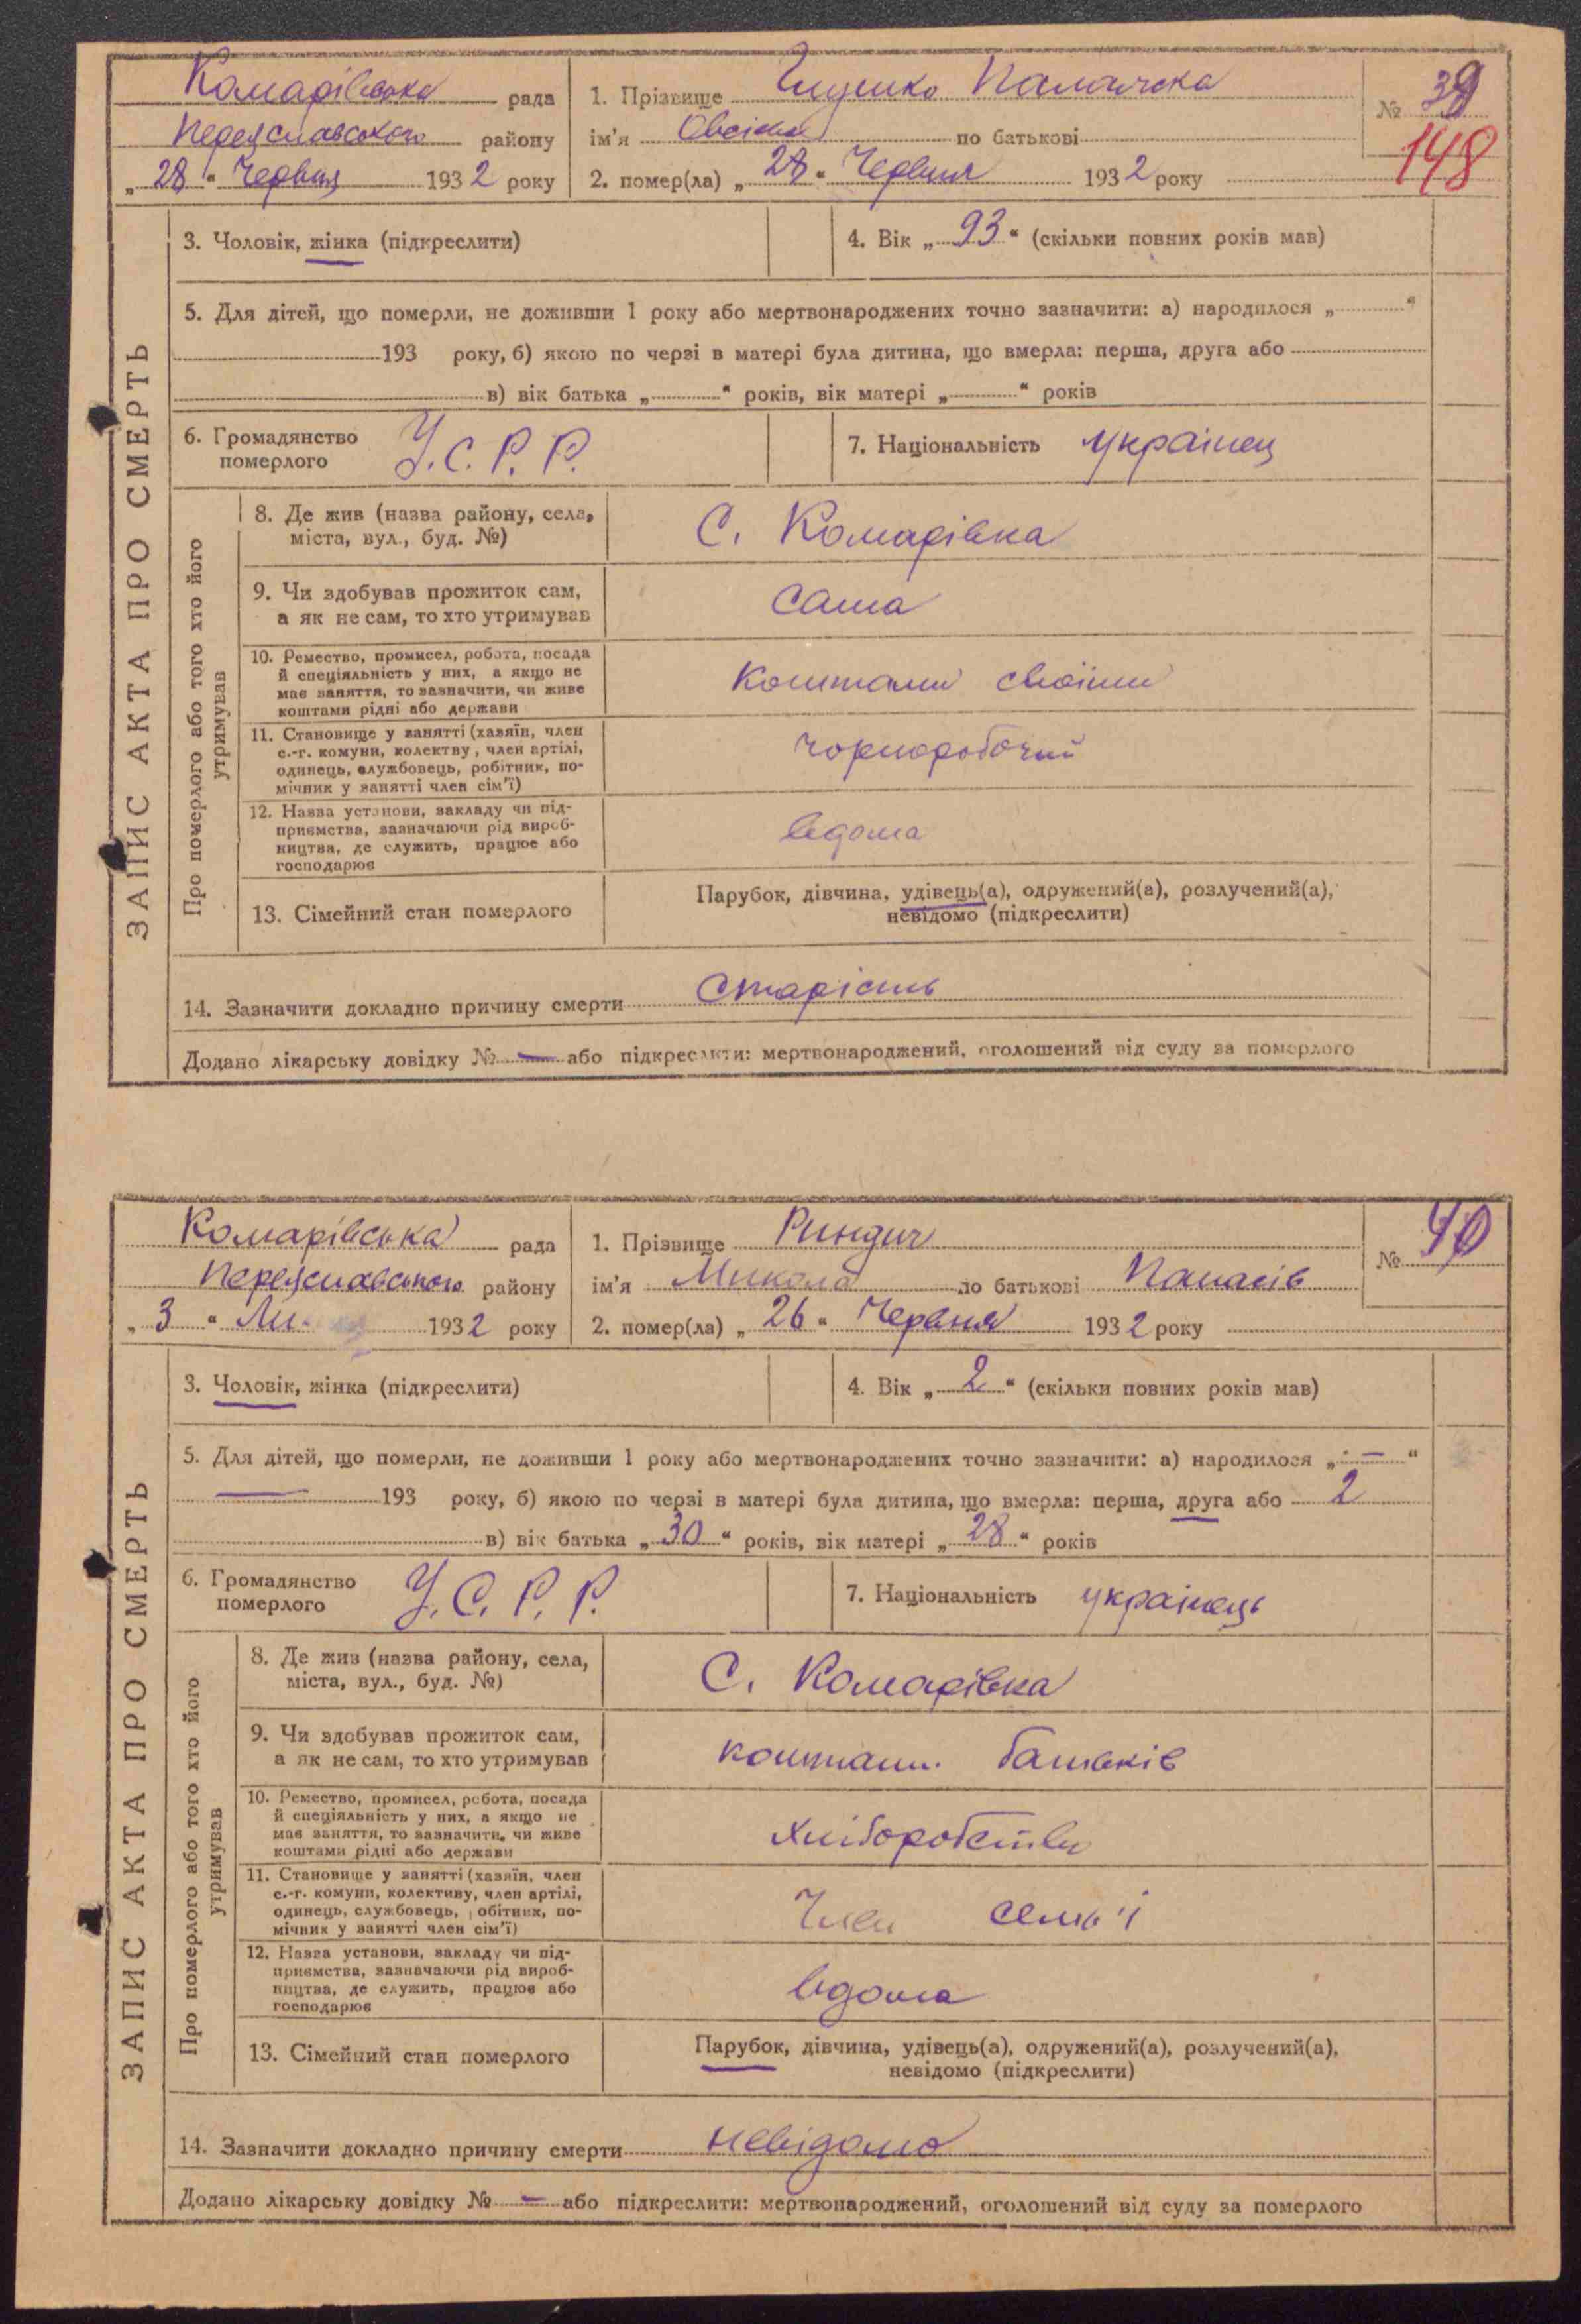 Комарівська рада
Переяславського району
„ 28 “ Червня 1932 року
1. Прізвище Палажка
ім'я по батькові
2. помер(ла) „ 28 “ Червня 1932 року
№ 39
148
ЗАПИС АКТА ПРО СМЕРТЬ
3. Чоловік, жінка (підкреслити)
4. Вік „ 93 “ (скільки повних років мав)
5. Для дітей, що померли, не доживши 1 року або мертвонароджених точно зазначити: а) народилося „ “
193 року, б) якою по черзі в матері була дитина, що вмерла: перша, друга або
в) вік батька „ “ років, вік матері „ “ років
6. Громадянство
померлого
У.С.Р.Р.
7. Національність українец
Про померлого або того хто його
утримував
8. Де жив (назва району, села,
міста, вул., буд. №)
С. Комарівка
9. Чи здобував прожиток сам,
а як не сам, то хто утримував
сама
10. Ремество, промисел, робота, посада
й спеціяльність у них, а якщо не
має заняття, то зазначити, чи живе
коштами рідні або держави
коштами своїми
11. Становище у занятті (хазяїн, член
с.-г. комуни, колектву, член артілі,
одинець, службовець, робітник, по-
мічник у занятті член сім'ї)
чорноробочий
12. Назва установи, закладу чи під-
приємства, зазначаючи рід вироб-
ництва, де служить, працює або
господарює
вдома
13. Сімейний стан померлого
Парубок, дівчина, удівець(а), одружений(а), розлучений(а),
невідомо (підкреслити)
14. Зазначити докладно причину смерти старість
Додано лікарську довідку № — або підкреслити: мертвонароджений, оголошений від суду за померлого
Комарівська рада
Переяславського району
„ 3 “ Ли 1932 року
1. Прізвище Риндич
ім'я Микола по батькові Панасів
2. помер(ла) „ 26 “ Червня 1932 року
№ 40
ЗАПИС АКТА ПРО СМЕРТЬ
3. Чоловік, жінка (підкреслити)
4. Вік „ 2 “ (скільки повних років мав)
5. Для дітей, що померли, не доживши 1 року або мертвонароджених точно зазначити: а) народилося „ — “
— 193 року, б) якою по черзі в матері була дитина, що вмерла: перша, друга або 2
в) вік батька „ 30 “ років, вік матері „ 28 “ років
6. Громадянство
померлого
У.С.Р.Р.
7. Національність українець
Про померлого або того хто його
утримував
8. Де жив (назва району, села,
міста, вул., буд. №)
С. Комарівка
9. Чи здобував прожиток сам,
а як не сам, то хто утримував
коштами батьків
10. Ремество, промисел, робота, посада
й спеціяльність у них, а якщо не
має заняття, то зазначити, чи живе
коштами рідні або держави
хліборобство
11. Становище у занятті (хазяїн, член
с.-г. комуни, колективу, член артілі,
одинець, службовець, обітник, по-
мічник у занятті член сім'ї)
Член семь'ї
12. Назва установи, закладу чи під-
приємства, зазначаючи рід вироб-
ництва, де служить, працює або
господарює
вдома
13. Сімейний стан померлого
Парубок, дівчина, удівець(а), одружений(а), розлучений(а),
невідомо (підкреслити)
14. Зазначити докладно причину смерти невідомо
Додано лікарську довідку № — або підкреслити: мертвонароджений, оголошений від суду за померлого